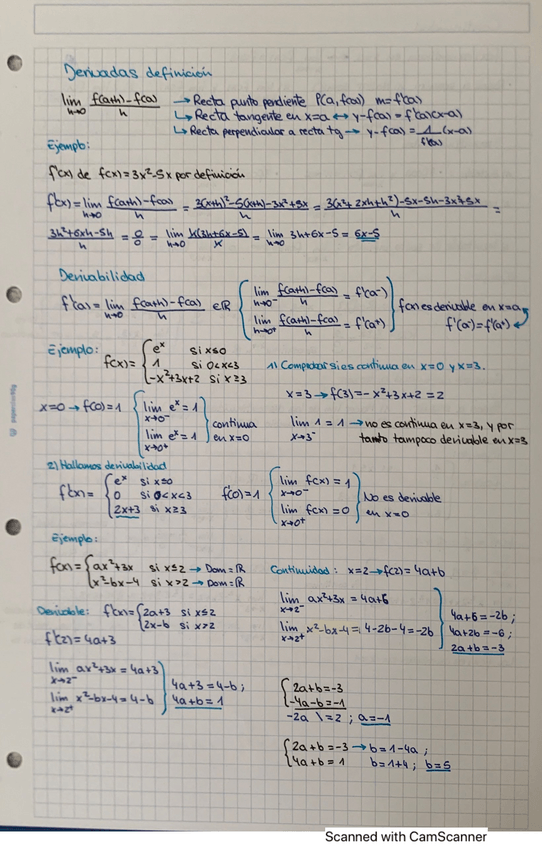 Derivadas definición
lim h→0 f(a+h)-f(a) / h → Recta punto pendiente P(a, f(a)) m=f'(a)
↳ Recta tangente en x=a ↔ y-f(a) = f'(a)(x-a)
↳ Recta perpendicular a recta tg → y-f(a) = 1/f'(a) (x-a)
Ejemplo:
f'(x) de f(x)=3x²-5x por definición
f'(x)= lim h→0 f(a+h)-f(a) / h = 3(x+h)²-5(x+h)-3x²+5x / h = 3(x²+2xh+h²)-5x-5h-3x²+5x / h =
3h²+6xh-5h / h = 0/0 = lim h→0 h(3h+6x-5) / h = lim h→0 3h+6x-5 = 6x-5
Derivabilidad
f'(a)= lim h→0 f(a+h)-f(a) / h ∈ℝ { lim h→0⁻ f(a+h)-f(a) / h = f'(a⁻)
lim h→0⁺ f(a+h)-f(a) / h = f'(a⁺) } f(x) es derivable en x=a
f'(a⁻)=f'(a⁺)
Ejemplo: f(x)= { eˣ si x≤0
1 si 0<x<3
-x²+3x+2 si x≥3
1) Comprobar si es continua en x=0 y x=3.
x=0 → f(0)=1 { lim x→0⁻ eˣ = 1
lim x→0⁺ eˣ = 1 } continua en x=0
x=3 → f(3)=-x²+3x+2 = 2
lim x→3⁻ 1 = 1 → no es continua en x=3, y por
tanto tampoco derivable en x=3
2) Hallamos derivabilidad
f'(x)= { eˣ si x≤0
0 si 0<x<3
2x+3 si x≥3
f'(0)=1 { lim x→0⁻ f(x) = 1
lim x→0⁺ f(x) = 0 } No es derivable en x=0
Ejemplo:
f(x)= { ax²+3x si x≤2 → Dom=ℝ
x²-bx-4 si x>2 → Dom=ℝ
Continuidad: x=2 → f(2)=4a+b
lim x→2⁻ ax²+3x = 4a+6
lim x→2⁺ x²-bx-4 = 4-2b-4 = -2b
4a+6=-2b ;
4a+2b=-6 ;
2a+b=-3
Derivable: f'(x)= { 2a+3 si x≤2
2x-b si x>2
f'(2)=4a+3
lim x→2⁻ ax²+3x = 4a+3
lim x→2⁺ x²-bx-4 = 4-b
4a+3=4-b ;
4a+b=1
{ 2a+b=-3
-4a-b=-1
-2a \ =2 ; a=-1
{ 2a+b=-3 → b=1-4a ;
4a+b=1 b=1+4 ; b=5
Scanned with CamScanner